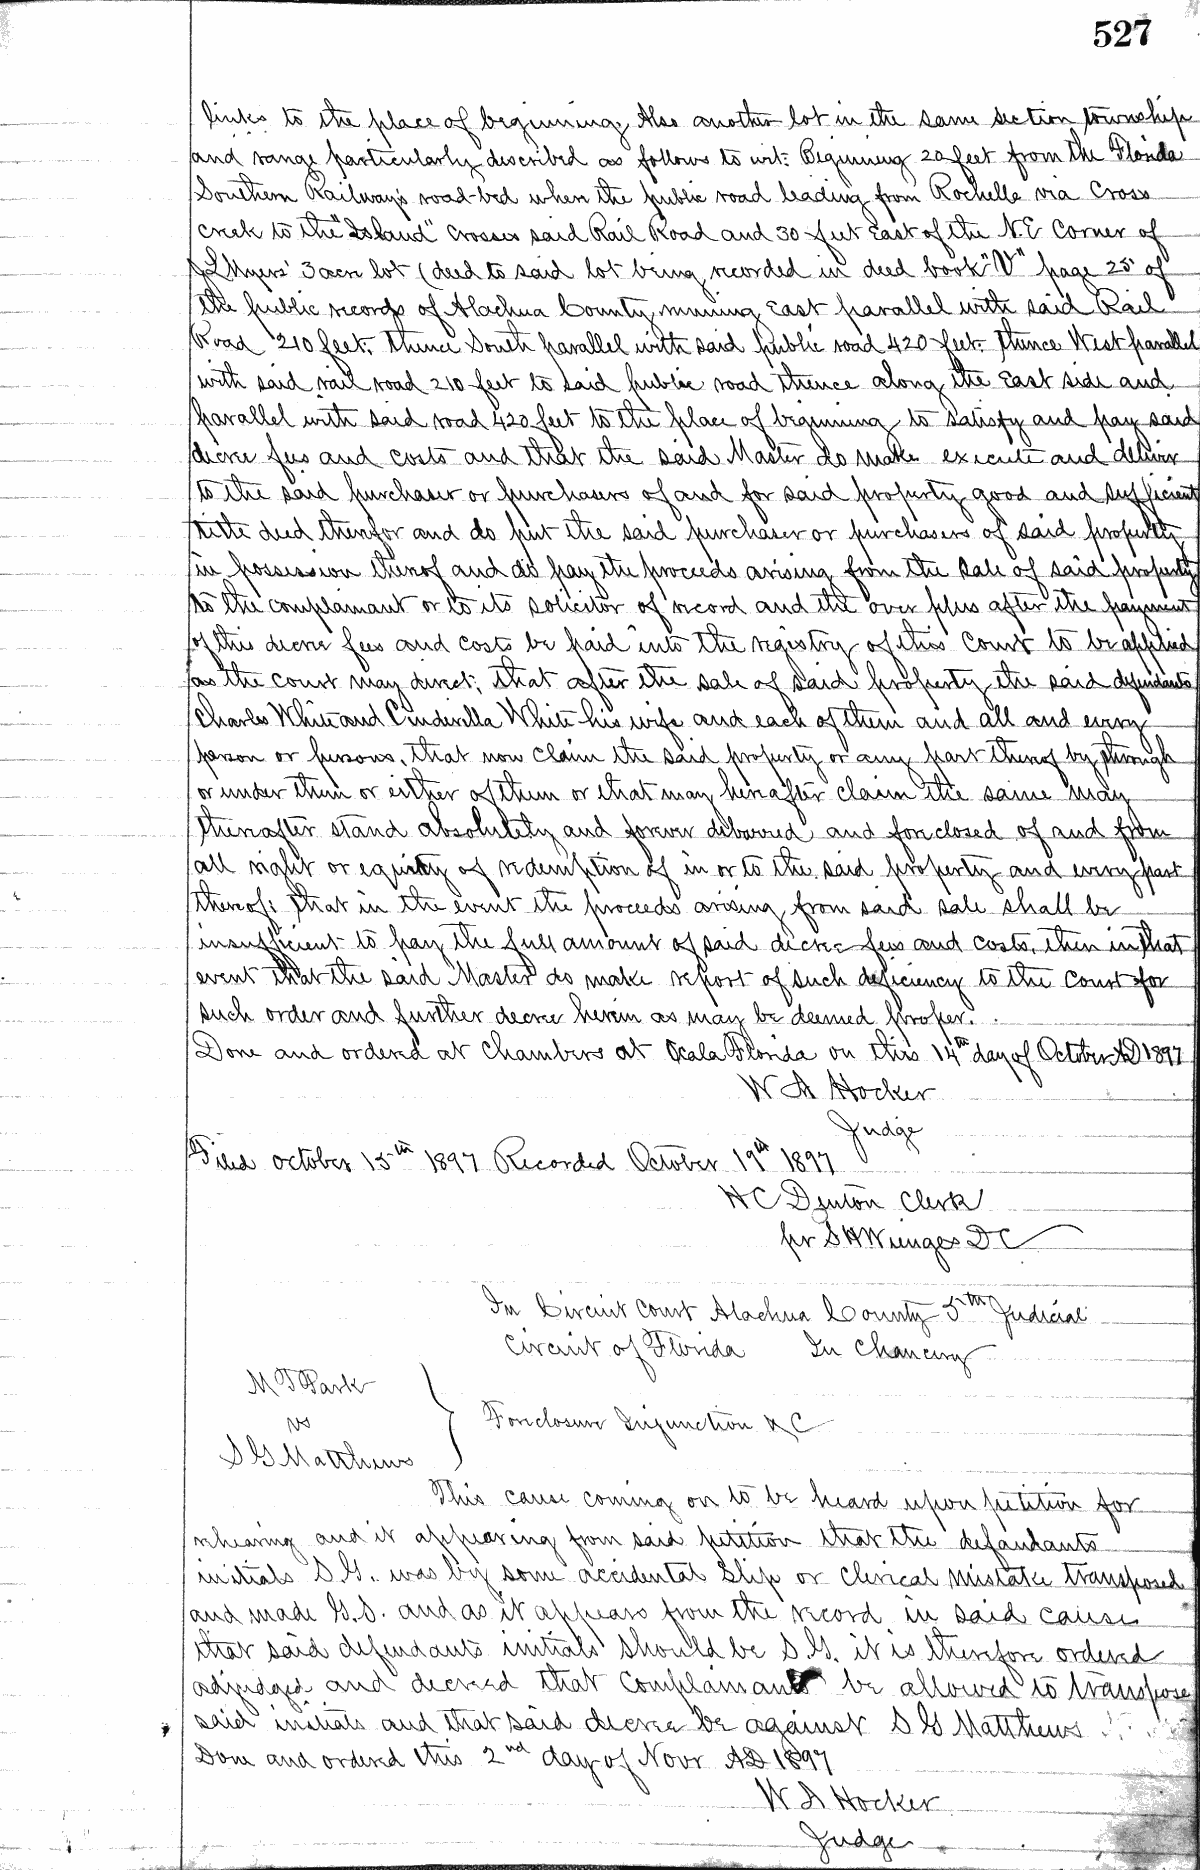 527
links to the place of beginning, Also another lot in the same section township
and range particularly described as follows to wit: Beginning 20 feet from the Florida
Southern Railway's road-bed when the public road leading from Rochelle via Cross
creek to the "Island" crosses said Rail Road and 30 feet East of the N.E Corner of
Myers' 3 acre lot (deed to said lot being recorded in deed book "V" page 25 of
the public records of Alachua County, running East parallel with said Rail
Road 210 feet, thence South parallel with said public road 420 feet, thence West parallel
with said rail road 210 feet to said public road thence along the East side and
parallel with said road 420 feet to the place of beginning to satisfy and pay said
decree fees and costs and that the said Master do make execute and deliver
to the said purchaser or purchasers of and for said property good and sufficient
title deed therefor and do put the said purchaser or purchasers of said property
in possession thereof and do pay the proceeds arising from the sale of said property
to the complainant or to its solicitor of record and the over plus after the payment
of this decree fees and costs be paid into the registry of this Court to be applied
as the court may direct; that after the sale of said property the said defendants
Charles White and Cinderilla White his wife and each of them and all and every
person or persons, that now claim the said property or any part thereof by through
or under them or either of them or that may hereafter claim the same may
thereafter stand absolutely and forever debarred and foreclosed of and from
all right or equity of redemption of in or to the said property and every part
thereof; that in the event the proceeds arising from said sale shall be
insufficient to pay the full amount of said decree fees and costs, then in that
event that the said Master do make report of such deficiency to the Court for
such order and further decree herein as may be deemed proper.
Done and ordered at Chambers at Ocala Florida on this 14th day of October AD 1897
W A Hocker
Judge
Filed October 15th 1897 Recorded October 19th 1897
H C Denton Clerk
pr S H Wienges D C
In Circuit Court Alachua County 5th Judicial
Circuit of Florida In Chancery
M F Park
vs
S G Matthews
Foreclosure Injunction &C
This cause coming on to be heard upon petition for
rehearing and it appearing from said petition that the defendants
initials S.G. was by some accidental slip or clerical mistake transposed
and made G.S. and as it appears from the record in said cause
that said defendants initials should be S.G. it is therefore ordered
adjudged and decreed that Complainant be allowed to transpose
said initials and that said decree be against S G Matthews
Done and ordered this 2nd day of Novr AD 1897
W A Hocker
Judge